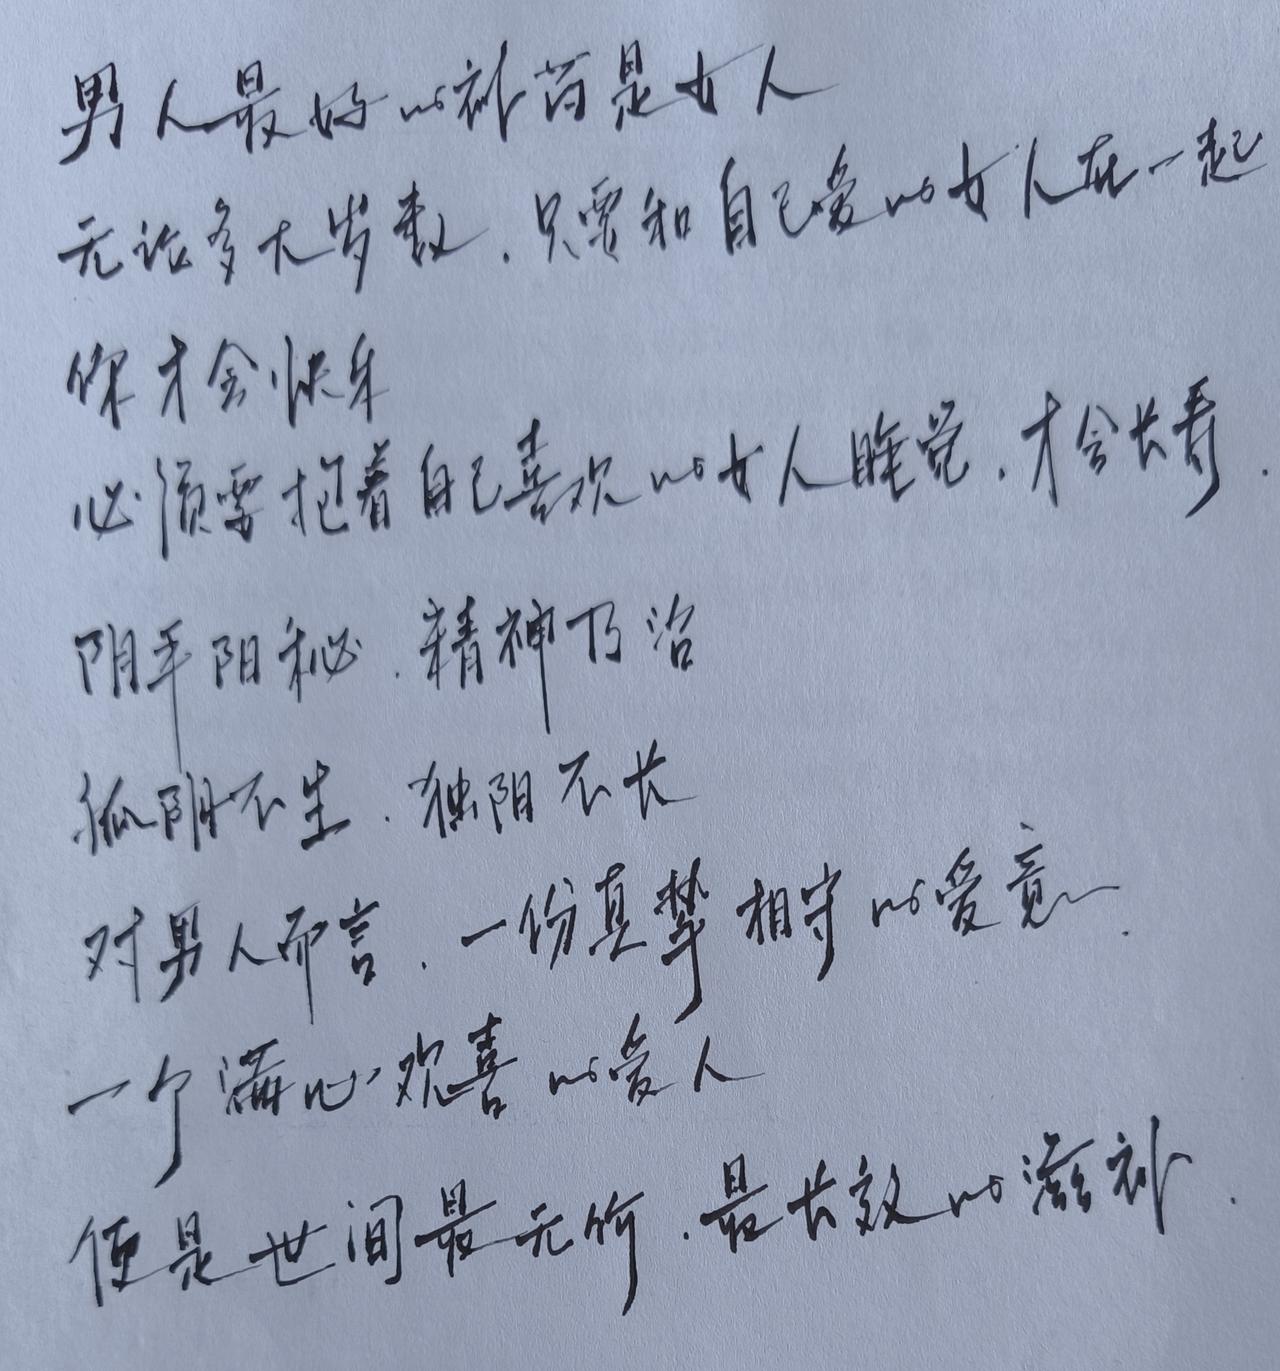 男人最好的补药是女人
无论多大岁数.只要和自己爱的女人在一起
你才会快乐
必须要抱着自己喜欢的女人睡觉.才会长寿.
阴平阳秘.精神乃治
孤阴不生.独阳不长
对男人而言.一份真挚相守的爱意.
一个满心欢喜的爱人
便是世间最无价.最长效的滋补.